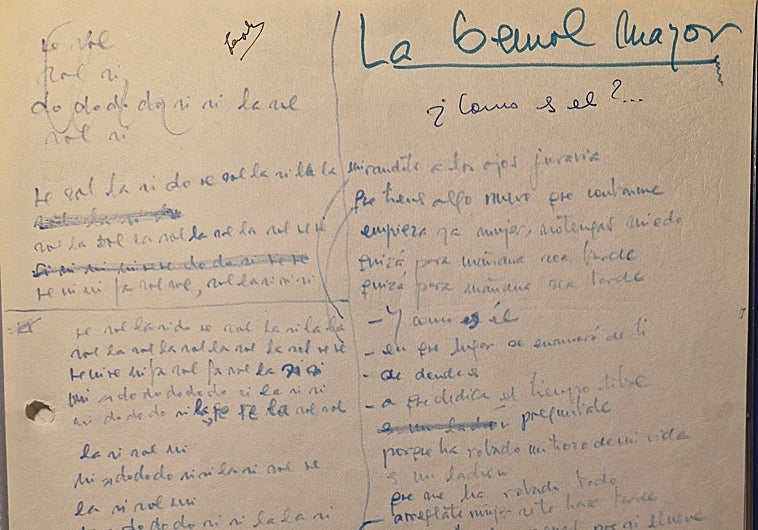 La bemol mayor
¿Como es el?...
sol
sol si
do do do do si si la sol
sol si
re sol la si do re sol la si la la
sol la sol la sol la sol la sol re re
re mi mi fa sol sol, sol la si si si
mirandote a los ojos juraria
que tienes algo nuevo que contarme
empieza ya mujer, no tengas miedo
quizá para mañana sea tarde
quiza para mañana sea tarde
- Y como es él
- en que lugar se enamoró de ti
- de donde es
- a que dedica el tiempo libre
es un ladrón preguntale
porque ha robado un trozo de mi vida
es un ladron
que me ha robado todo
- arreglate mujer se te hace tarde
re sol la si do re sol la si la la
sol la sol la sol la sol la sol re re
re mi re mi fa sol fa sol la
mi do do do do do si la si si
mi do do do si la re re la sol sol
la si sol mi
mi do do do si si la si sol re
la si sol mi
do do do si si la la si